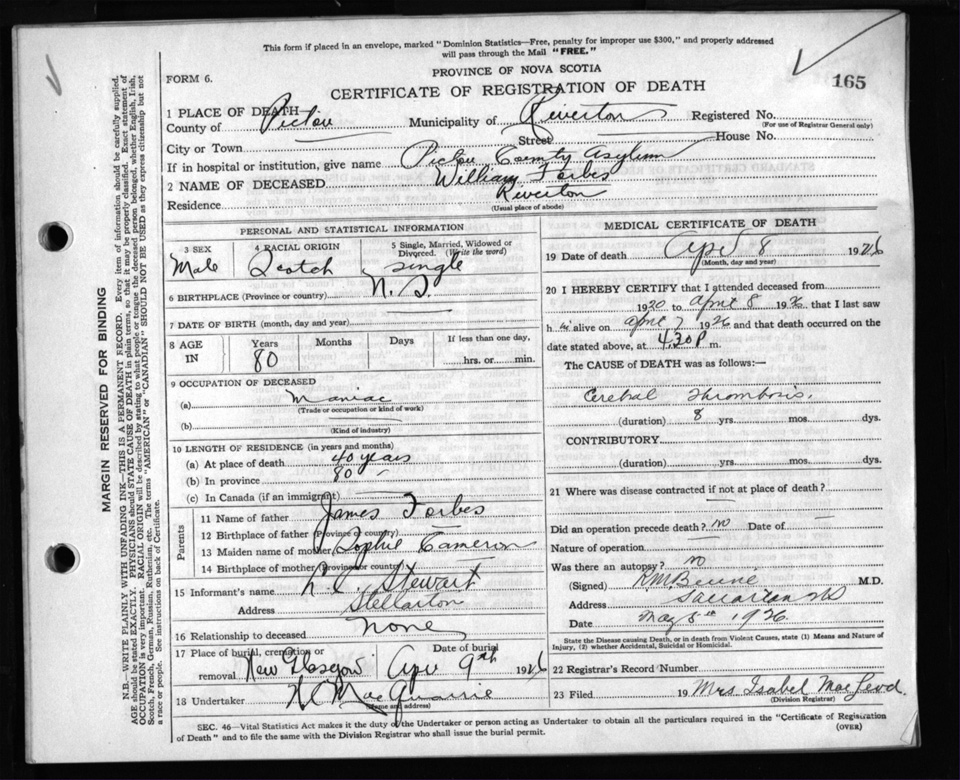 This form if placed in an envelope, marked "Dominion Statistics—Free, penalty for improper use $300," and properly addressed
will pass through the Mail "FREE."
PROVINCE OF NOVA SCOTIA
FORM 6.
CERTIFICATE OF REGISTRATION OF DEATH
165
1 PLACE OF DEATH—
County of Pictou Municipality of Riverton Registered No.
(For use of Registrar General only)
City or Town Street House No.
If in hospital or institution, give name Pictou County Asylum
2 NAME OF DECEASED William Forbes
Residence Riverton
(Usual place of abode)
PERSONAL AND STATISTICAL INFORMATION
3 SEX 4 RACIAL ORIGIN 5 Single, Married, Widowed or Divorced. (Write the word)
Male Scotch single
6 BIRTHPLACE (Province or country) N.S.
7 DATE OF BIRTH (month, day and year)
8 AGE IN Years Months Days If less than one day,
80 hrs. or min.
9 OCCUPATION OF DECEASED
(a) Maniac
(Trade or occupation or kind of work)
(b)
(Kind of industry)
10 LENGTH OF RESIDENCE (in years and months)
(a) At place of death 40 years
(b) In province 80
(c) In Canada (if an immigrant)
Parents
11 Name of father James Forbes
12 Birthplace of father (Province or country)
13 Maiden name of mother Sophie Cameron
14 Birthplace of mother (Province or country)
15 Informant's name Stewart
Address Stellarton
16 Relationship to deceased None
17 Place of burial, cremation or removal Date of burial
New Glasgow Apr 9th 1926
18 Undertaker MacQuarrie
(Name and address)
MEDICAL CERTIFICATE OF DEATH
19 Date of death April 8 1926
(Month, day and year)
20 I HEREBY CERTIFY that I attended deceased from
1920 to April 8 1926, that I last saw
h im alive on April 7 1926 and that death occurred on the
date stated above, at 4.30 P m.
The CAUSE OF DEATH was as follows:—
Cerebal Thrombosis.
(duration) 8 yrs. mos. dys.
CONTRIBUTORY
(duration) yrs. mos. dys.
21 Where was disease contracted if not at place of death?
Did an operation precede death? no Date of
Nature of operation
Was there an autopsy? no
(Signed) M.D.
Address
Date May 5th 1926.
State the Disease causing Death, or in death from Violent Causes, state (1) Means and Nature of Injury, (2) whether Accidental, Suicidal or Homicidal.
22 Registrar's Record Number
23 Filed 19 Mrs Isabel MacLeod.
(Division Registrar)
SEC. 46—Vital Statistics Act makes it the duty of the Undertaker or person acting as Undertaker to obtain all the particulars required in the "Certificate of Registration
of Death" and to file the same with the Division Registrar who shall issue the burial permit.
(OVER)
MARGIN RESERVED FOR BINDING
N.B.—WRITE PLAINLY WITH UNFADING INK—THIS IS A PERMANENT RECORD. Every item of information should be carefully supplied.
AGE should be stated EXACTLY. PHYSICIANS should STATE CAUSE OF DEATH in plain terms, so that it may be properly classified. Exact statement of
OCCUPATION is very important. RACIAL ORIGIN will be described by stating to what people or tongue the deceased person belonged, whether English, Irish,
Scotch, French, German, Russian, Ruthenian, etc. The terms "AMERICAN" or "CANADIAN" SHOULD NOT BE USED as they express citizenship but not
a race or people. See instructions on back of Certificate.